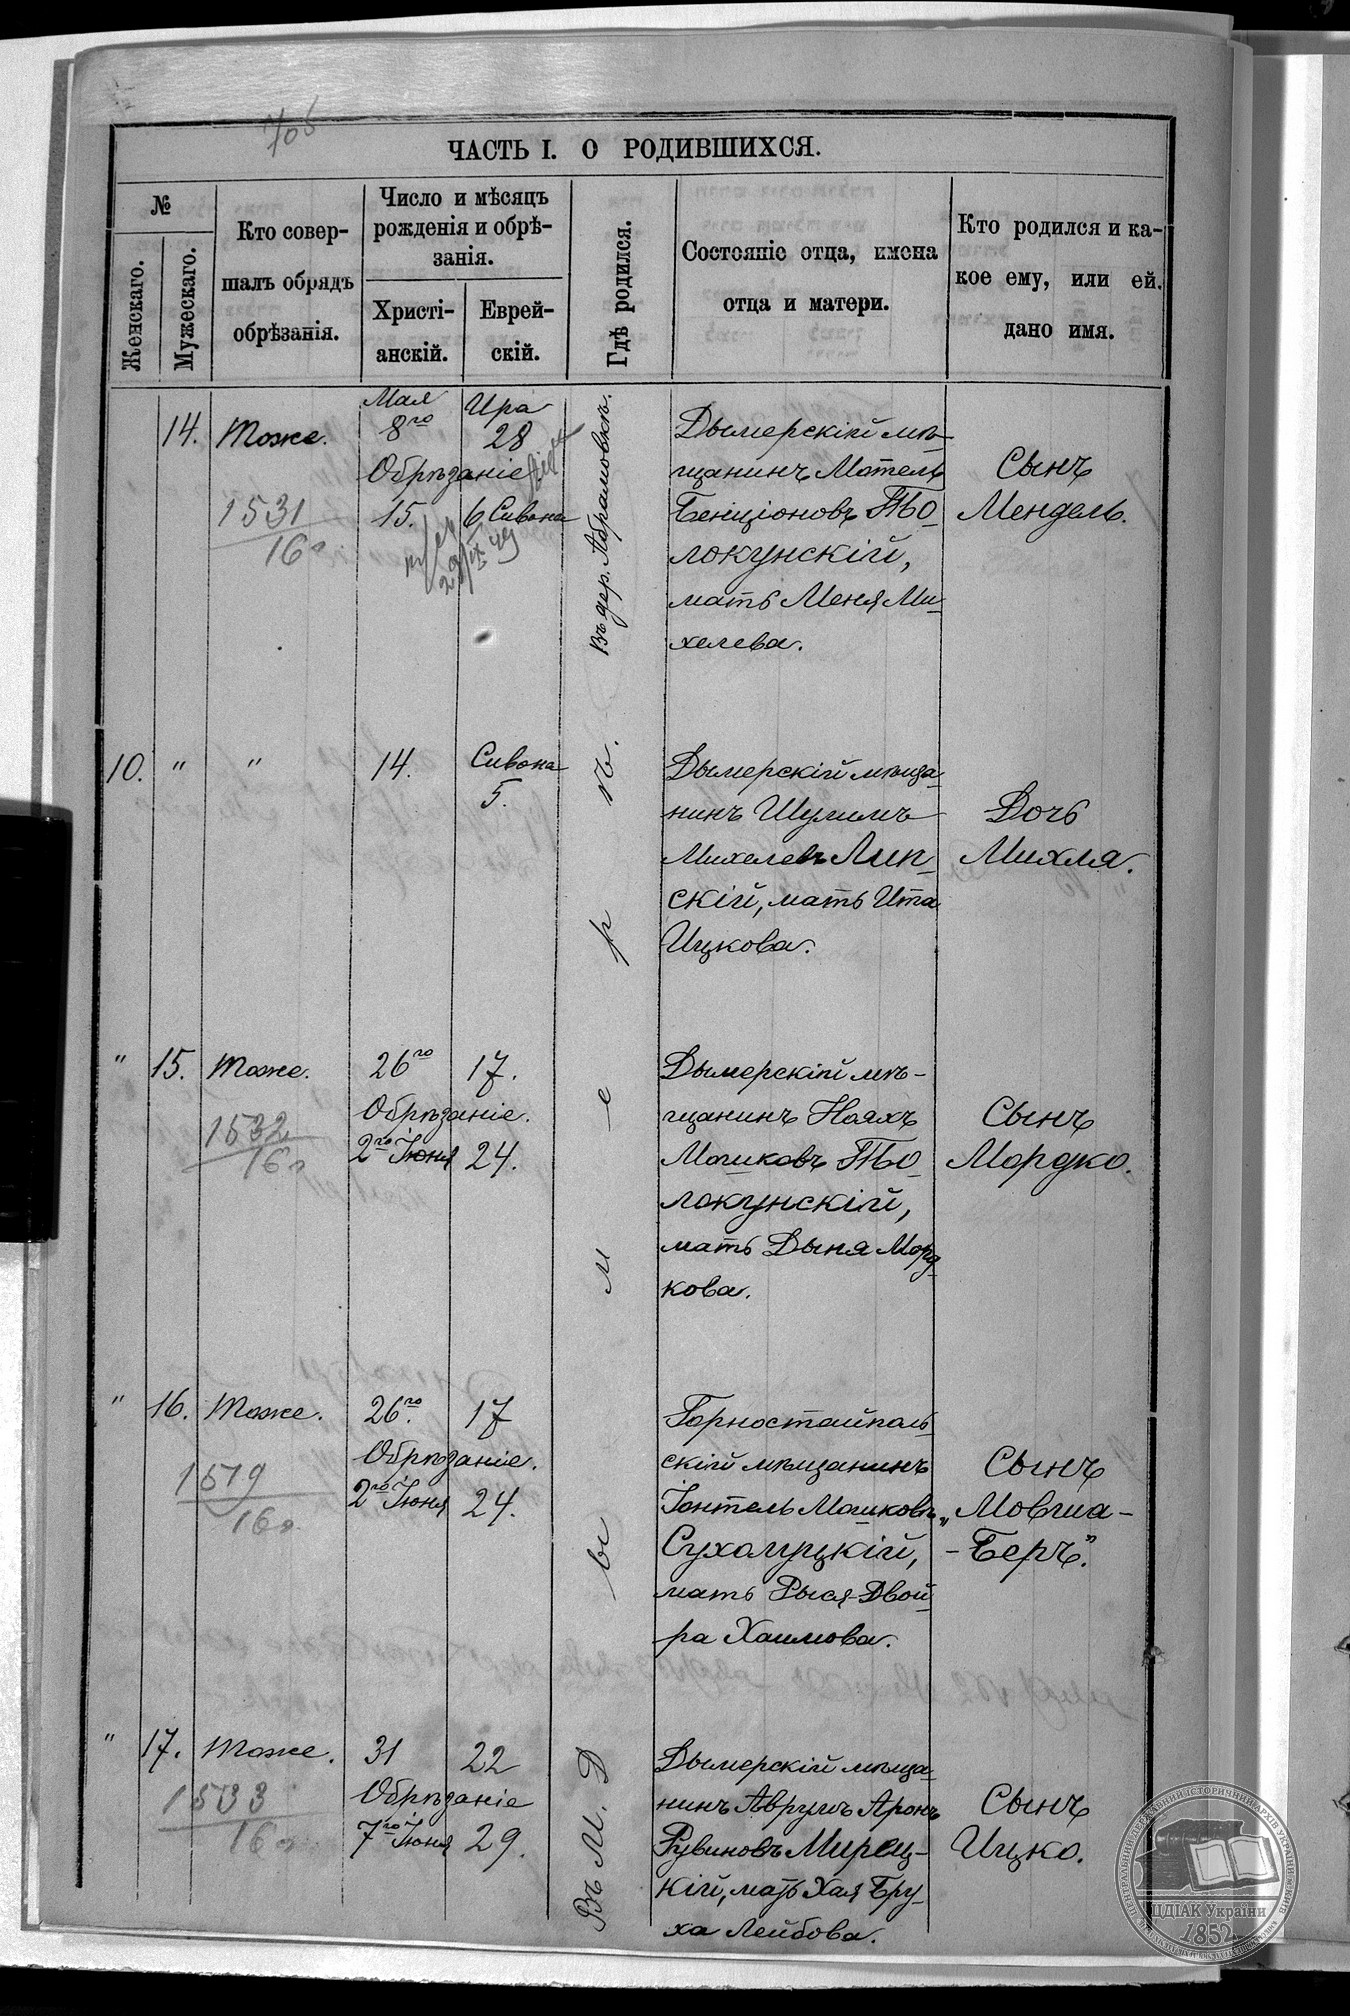 705
ЧАСТЬ I. О РОДИВШИХСЯ.
№
Женскаго.
Мужескаго.
Кто совер-
шалъ обрядъ
обрѣзанія.
Число и мѣсяцъ
рожденія и обрѣ-
занія.
Христі-
анскій.
Еврей-
скій.
Гдѣ родился.
Состояніе отца, имена
отца и матери.
Кто родился и ка-
кое ему, или ей.
дано имя.
14. Тоже.
Мая
8го
Ира
28
Обрѣзаніе.
15. 6 Сивона
1531
16о
Въ дер. Абрамовкѣ.
Дымерскій мѣ-
щанинъ Мотель
Бенціоновъ ТО-
локунскій,
мать Меня Ми-
хелева.
Сынъ
Мендель.
10. " " 14. Сивона
5.
Дымерскій мѣща-
нинъ Шулимъ
Михелевъ Лип-
скій, мать Ита
Ицкова.
Дочь
Михля.
" 15. Тоже. 26го 17.
Обрѣзаніе.
2го Іюня 24.
1532
16о
Дымерскій мѣ-
щанинъ Нояхъ
Мошковъ ТО-
локунскій,
мать Дыня Морд-
кова.
Сынъ
Мордко.
" 16. Тоже. 26го. 17
Обрѣзаніе.
2го Іюня 24.
1519
16о
Горностайполь-
скій мѣщанинъ
Іонтель Мошковъ
Сухолуцкій,
мать Рыся-Двой-
ра Хаимова.
Сынъ
„Мовша-
-Беръ".
" 17. Тоже. 31 22
Обрѣзаніе
7го Іюня 29.
1533
16о
Въ М. Дымерѣ.
Дымерскій мѣща-
нинъ Аврумъ Аронъ
Рувиновъ Мирец-
кій, мать Хая Бру-
ха Лейбова.
Сынъ
Ицко.
ЦЕНТРАЛЬНИЙ ДЕРЖАВНИЙ ІСТОРИЧНИЙ АРХІВ УКРАЇНИ
ЦДІАК України
1852